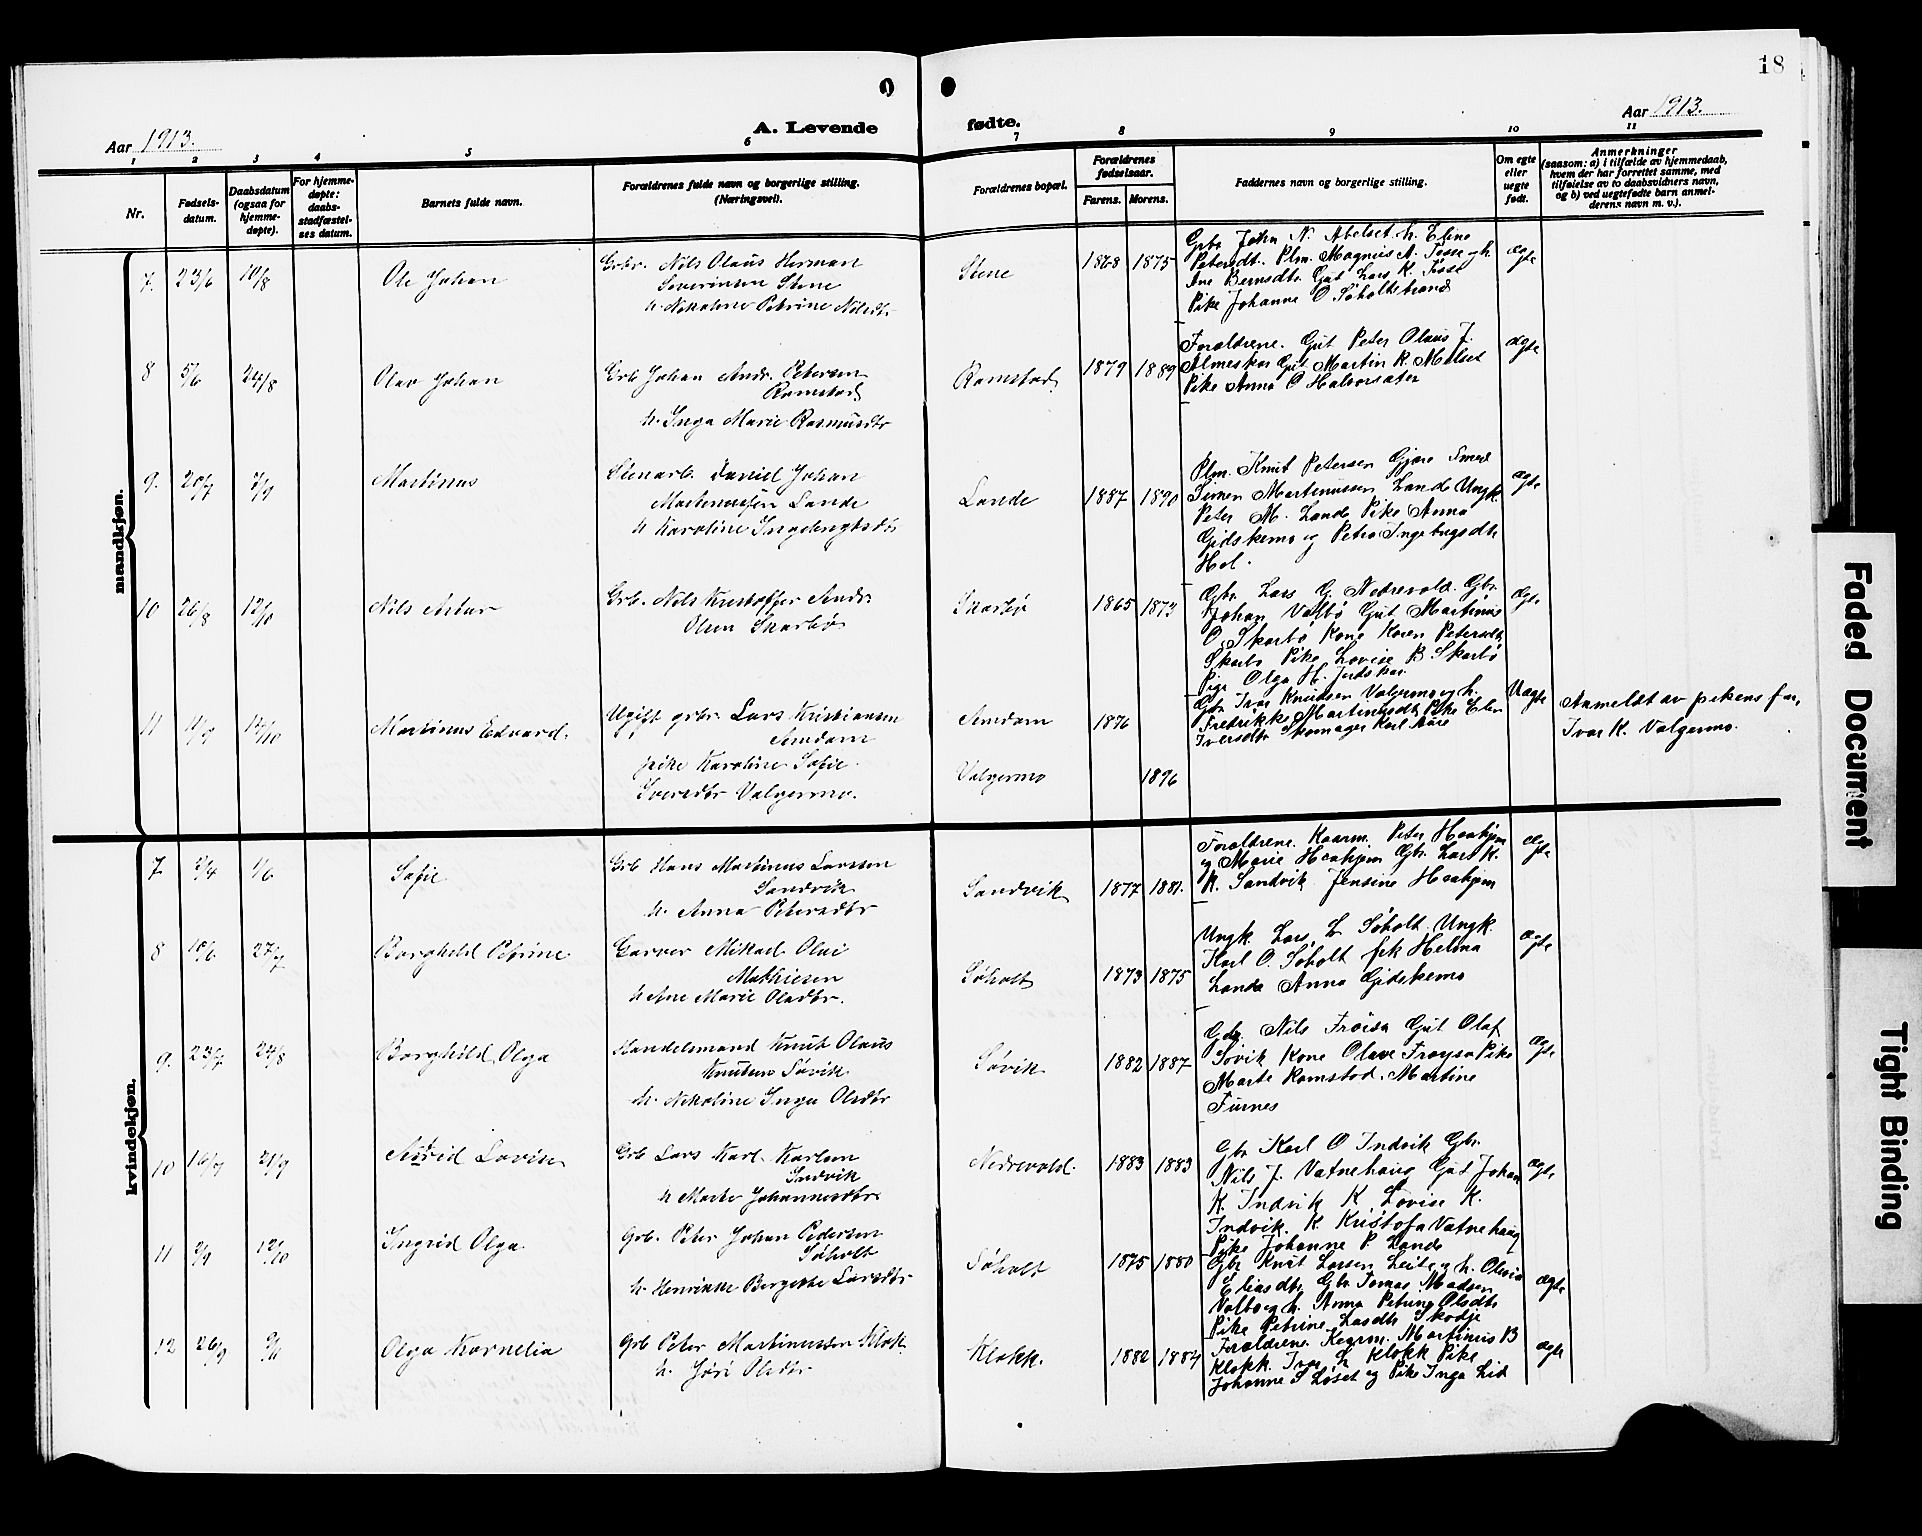 18
Aar 1913.
A. Levende
fødte.
Aar 1913.
1 2 3 4 5 6 7 8 9 10 11
Nr.
Fødsels-
datum.
Daabsdatum
(ogsaa for
hjemme-
døpte).
For hjemme-
døpte:
daabs-
stadfæstel-
ses datum.
Barnets fulde navn.
Forældrenes fulde navn og borgerlige stilling.
(Næringsvei).
Forældrenes bopæl.
Forældrenes
fødselsaar.
Farens. Morens.
Faddernes navn og borgerlige stilling.
Om egte
eller
uegte
født.
Anmerkninger
(saasom: a) i tilfælde av hjemmedaab,
hvem der har forrettet samme, med
tilføielse av to daabsvidners navn,
og b) ved uegtefødte barn anmel-
derens navn m. v.).
mandkjøn.
7. 23/6 10/8 Ole Johan
Grbr. Nils Olaus Herman
Severinsen Stene
h. Nikoline Petrine Nilsdtr
Stene 1878 1875
Grbr John N. Abelset h. Eline
Petersdt. Plm. Magnus A. Tosse og h.
Ane Bernsdtr Gut Lars K. Tosse
Pike Johanne O Søholtstrand
ægte
8 5/6 24/8 Olav Johan
Grb Johan Andr. Petersen
Ramstad
h. Inga Marie Rasmusdtr
Ramstad 1879 1889
Forældrene. Gut Peter Olaus J.
Almeskar Gut Martin K. Melset
Pike Anna O Halvorsæter
ægte
9. 20/7 7/9 Martinus
Stenarb. Daniel Johan
Martinussen Lande
h Karoline Ingebrigtsdtr
Lande 1887 1890
Plm. Knut Petersen Gjære Smed
Simen Martinussen Lande Ungk
Peter M. Lande Pike Anna
Gidskemo og Petra Ingebrigsdtr
Hol.
ægte
10 26/8 12/10 Nils Artur
Grb. Nils Kristoffer Andr.
Olsen Skarbø
Skarbø 1865 1873
Gbr. Lars G. Nedrevold. Gbr.
Johan Valbø Gut Martinus
O. Skarbø Kone Karen Petersdt
Skarbø Pike Lovise B. Skarbø
Pige Olga H.
Ægte
11 11/9 12/10 Martinus Edvard.
Ugift grbr. Lars Kristiansen
Amdam
pike Karoline Sofie
Iversdtr Valgermo.
Amdam 1876
Valgermo 1896
Gbr Ivar Knudsen Valgermo og h.
Fredrikke Martinusdt Pike Elen
Iversdtr Skomager Karl Aare
Uægte
Anmeldt av pikens far,
Ivar K. Valgermo.
kvindekjøn.
7 2/4 1/6 Sofie
Grb Hans Martinus Larssen
Sandvik
h. Anna Petersdtr
Sandvik 1877 1881.
Forældrene. Kaarm. Peter Haahjem
og Marie Haahjem Gbr. Lars K.
K. Sandvik Jensine Haahjem
ægte
8 10/6 27/7 Borghild Petrine
Garver Mikael Olai
Mathiesen
h Ane Marie Olsdtr.
Søholt 1873 1875
Ungk. Lars L Søholt Ungk.
Karl O. Søholt frk Helma
Lande Anna Gidskemo
ægte
9. 23/7 24/8 Borghild Olga
Handelsmand Knut Olaus
Knutsen Søvik
h. Nikoline Inga Olsdtr
Søvik 1882 1887
Gbr. Nils Frøisa Gut Olaf
Søvik Kone Olave Frøysa Pike
Marte Ramstad. Martine
Furnes
ægte
10 16/7 21/9 Astrid Lovise
Grb Lars Karl Karlsen
Indvik
h Marte Johannesdtr
Nedrevold. 1883 1883
Gbr Karl O Indvik Gbr.
Nils J. Vatnehaug Gut Johan
K. Indvik K. Lovise K.
Indvik. K. Kristofa Vatnehaug
Pike Johanne P. Lande
ægte
11 2/9 12/10 Ingrid Olga
Grb. Peter Johan Pedersen
Søholt
h. Henrikke Bergithe Larsdtr
Søholt 1875 1880
Gbr Knut Larsen Leite og h. Olivia
Eliasdtr Gbr Tomas Madsen
Valbø og h. Anna Petrine Olsdtr
Pike Petrine Larsdtr Skodje
ægte
12 26/9 9/11 Olga Kornelia
Grb Peter Martinussen Klok.
h. Jøri Olsdtr
Klokk. 1882 1884
Forældrene. Kaarm. Martinus B
Klokk. Ivar L Klokk Pike
Johanne S Løset og Pike Inga Lid
ægte
Faded Document
Tight Binding